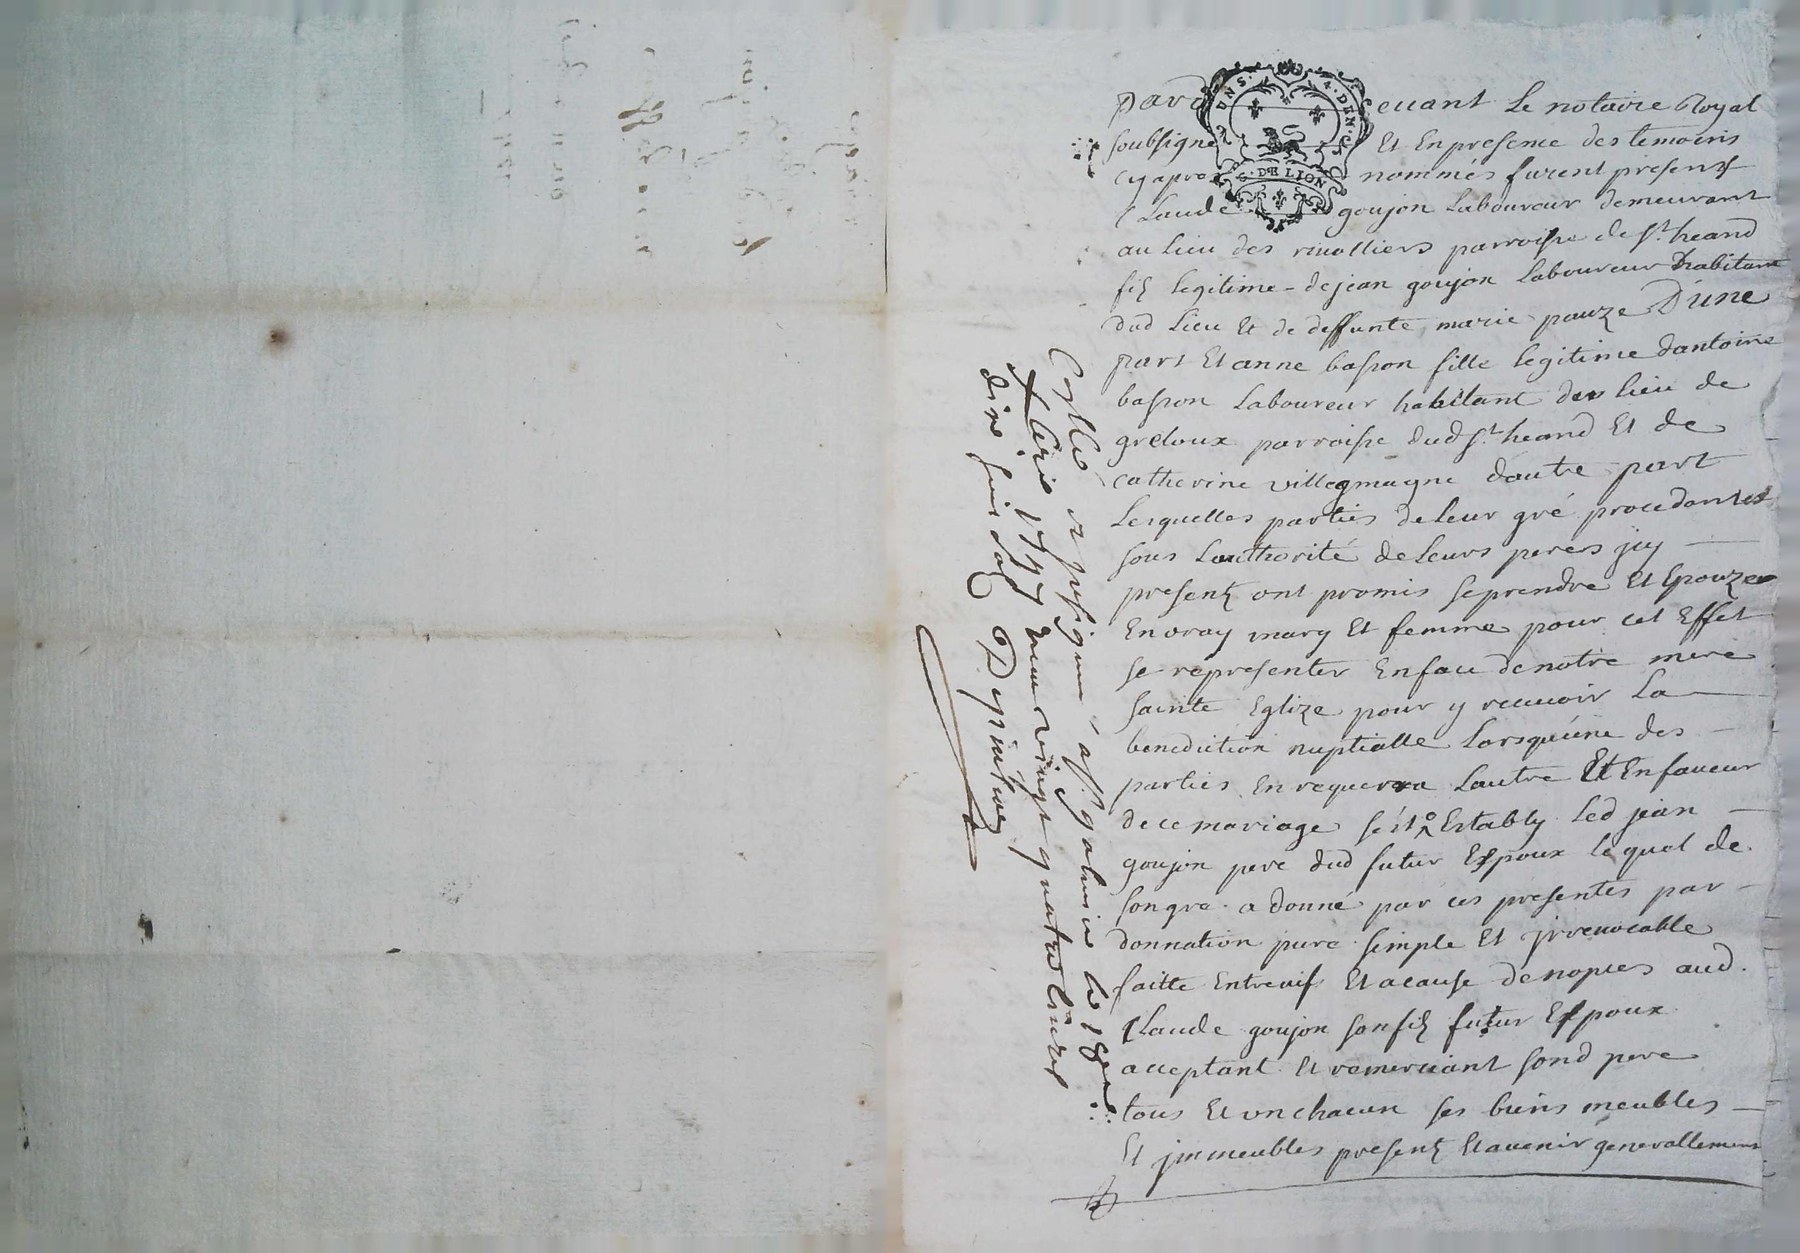 2 UNS. 4. DEN.
G. DE LION
pard evant Le notaire Royal
soubsigné Et En presence des temoins
cy apres nommés furent presents
Claude goujon Laboureur demeurant
au lieu des rivolliers parroisse de st. heand
filz legitime de jean goujon Laboureur habitant
dud Lieu Et de deffunte marie pauze D'une
part Et anne basson fille legitime dantoine
basson Laboureur habitant du lieu de
greloux parroisse dud st. heand Et de
catherine villegmagne dautre part
Lesquelles parties de leur gré procedantes
sous Lauthorité de leurs peres jcy
presentz ont promis se prendre Et Epouzer
En vray mary Et femme pour cet Effet
se representer En face de notre mere
sainte Eglize pour y recevoir La
benediction nuptialle Lorsquúne des
parties En requerra Lautre Et En faveur
de ce mariage sést Estably Led jean
goujon pere dud futur Espoux lequel de
son gré a donné par ces presentes par
donnation pure simple Et jrrevocable
faitte Entrevif Et a cause de nopces aud.
Claude goujon son filz futur Espoux
acceptant Et remerciant sond pere
tous Et un chacun ses biens meubles
Et jmmeubles presentz Et avenir generallement
Collé et
1777 vingt quatre livres